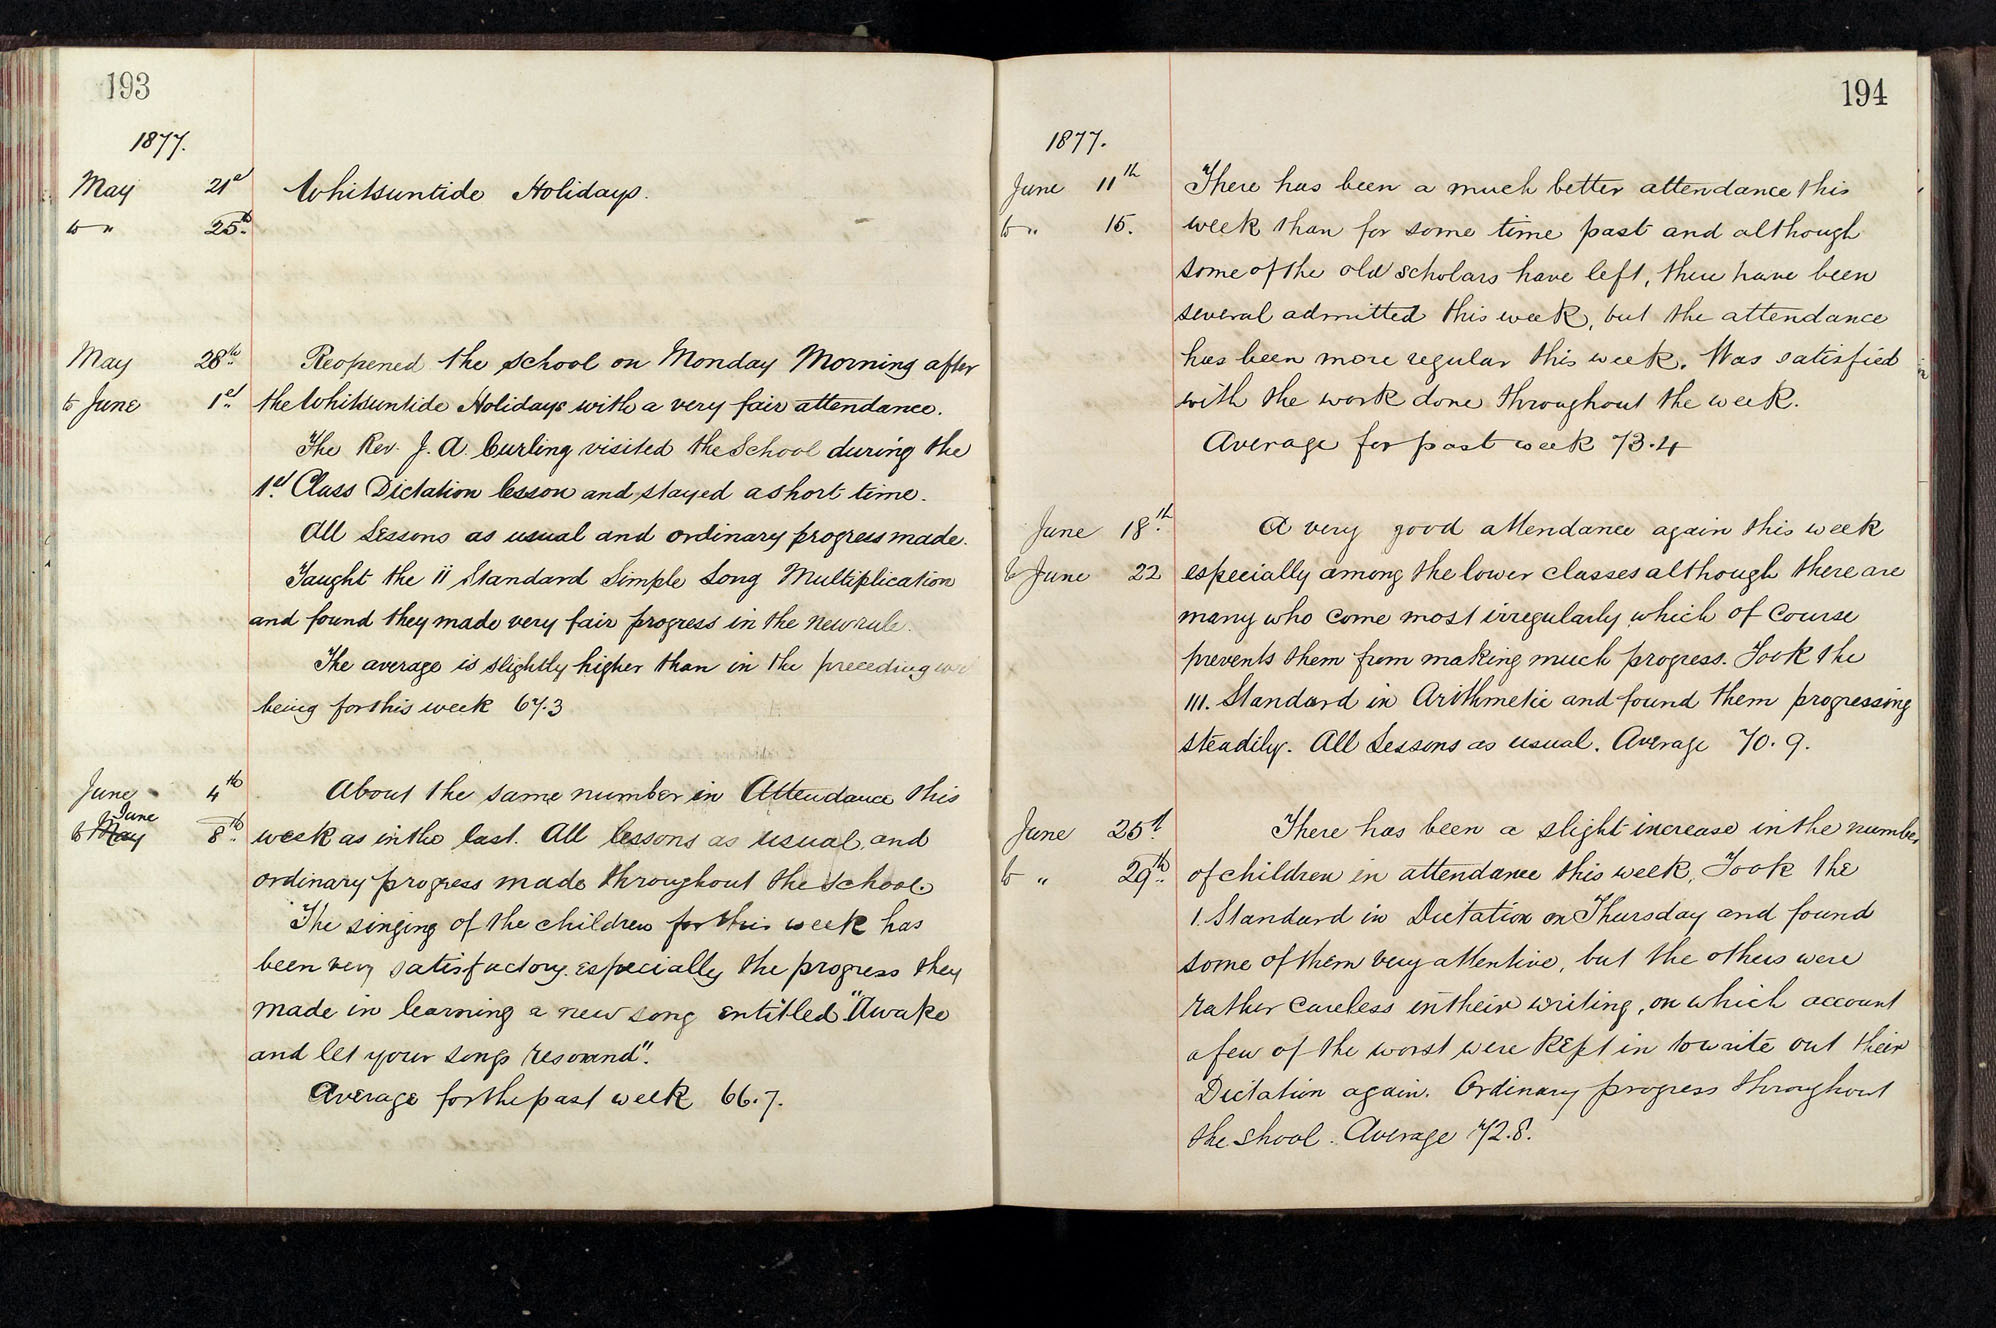 193
1877.
May 21st Whitsuntide Holidays.
to " 25th
May 28th Reopened the school on Monday Morning after
to June 1st the Whitsuntide Holidays with a very fair attendance.
The Rev. J. A. Curling visited the School during the
1st Class Dictation lesson and stayed a short time.
All Lessons as usual and ordinary progress made.
Taught the ii Standard Simple Long Multiplication
and found they made very fair progress in the new rule.
The average is slightly higher than in the preceding
being for this week 67.3
June 4th About the same number in Attendance this
June
to May 8th week as in the last. All lessons as usual, and
ordinary progress made throughout the School.
The singing of the children for this week has
been very satisfactory especially the progress they
made in learning a new song entitled "Awake
and let your songs resound".
Average for the past week 66.7.
194
1877.
June 11th There has been a much better attendance this
to " 15. week than for some time past and although
some of the old scholars have left, there have been
several admitted this week, but the attendance
has been more regular this week. Was satisfied
with the work done throughout the week.
Average for past week 73.4
June 18th A very good attendance again this week
to June 22 especially among the lower classes although there are
many who come most irregularly which of course
prevents them from making much progress. Took the
III. Standard in Arithmetic and found them progressing
steadily. All Lessons as usual. Average 70.9.
June 25t There has been a slight increase in the number
to " 29th of children in attendance this week, Took the
1. Standard in Dictation on Thursday and found
some of them very attentive, but the others were
rather careless in their writing, on which account
a few of the worst were kept in to write out their
Dictation again. Ordinary progress throughout
the shool. Average 72.8.